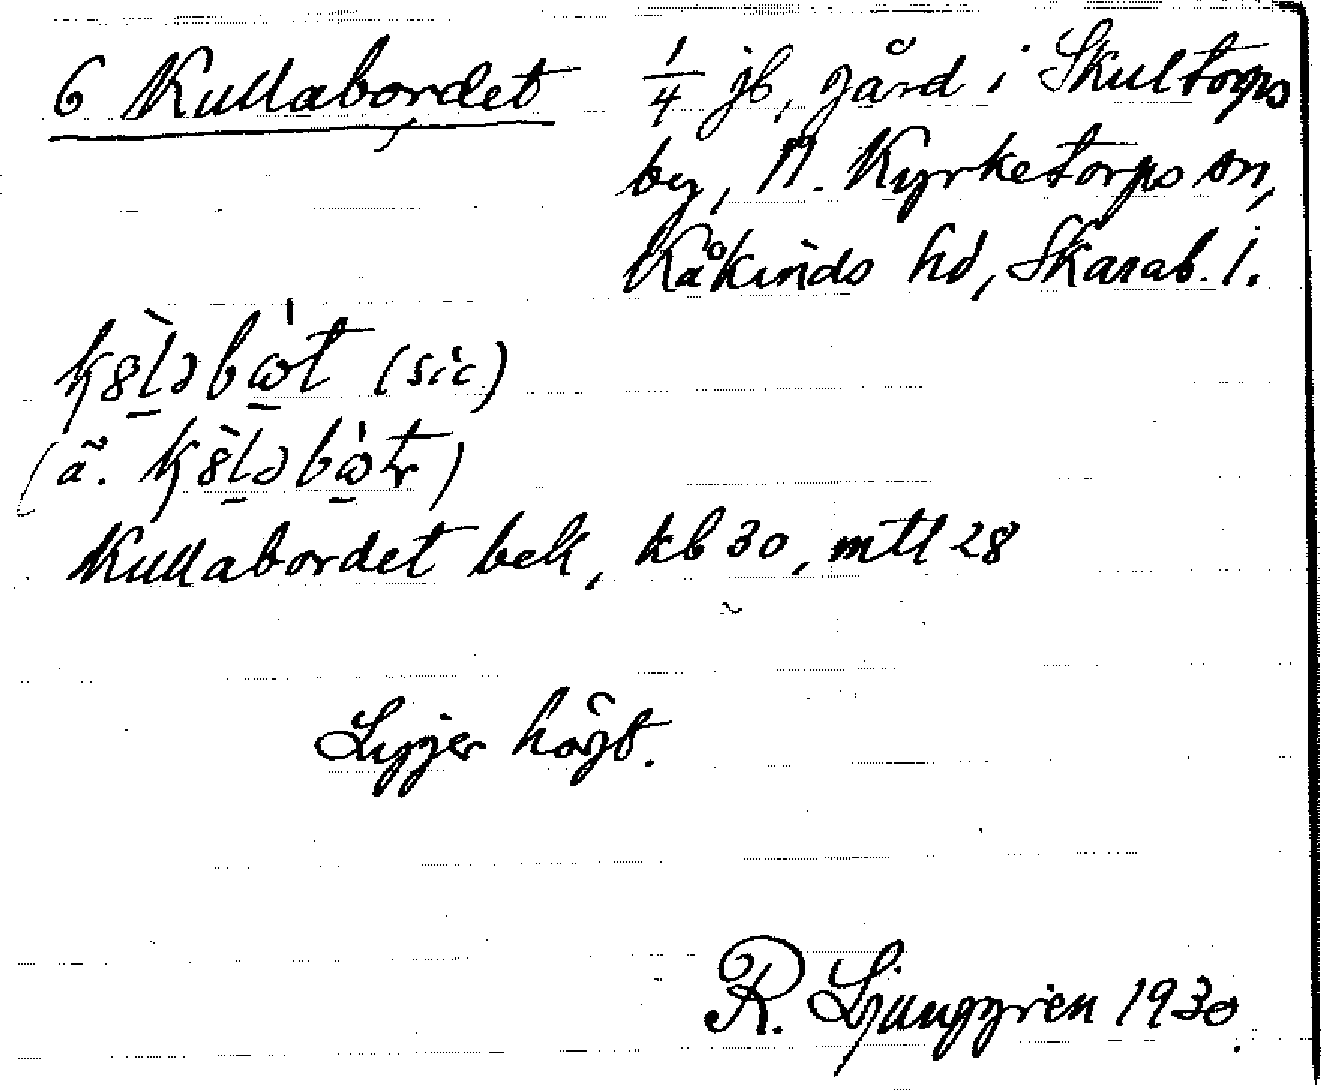 6 Kullabordet 1/4 jb, gård i Skultorps
by, N. Kyrketorps sn,
Kåkinds hd, Skarab. l.
(sic)
(ä.
Kullabordet bek, kb 30, mtl 28
Ligger högt.
R. Ljunggren 1930.